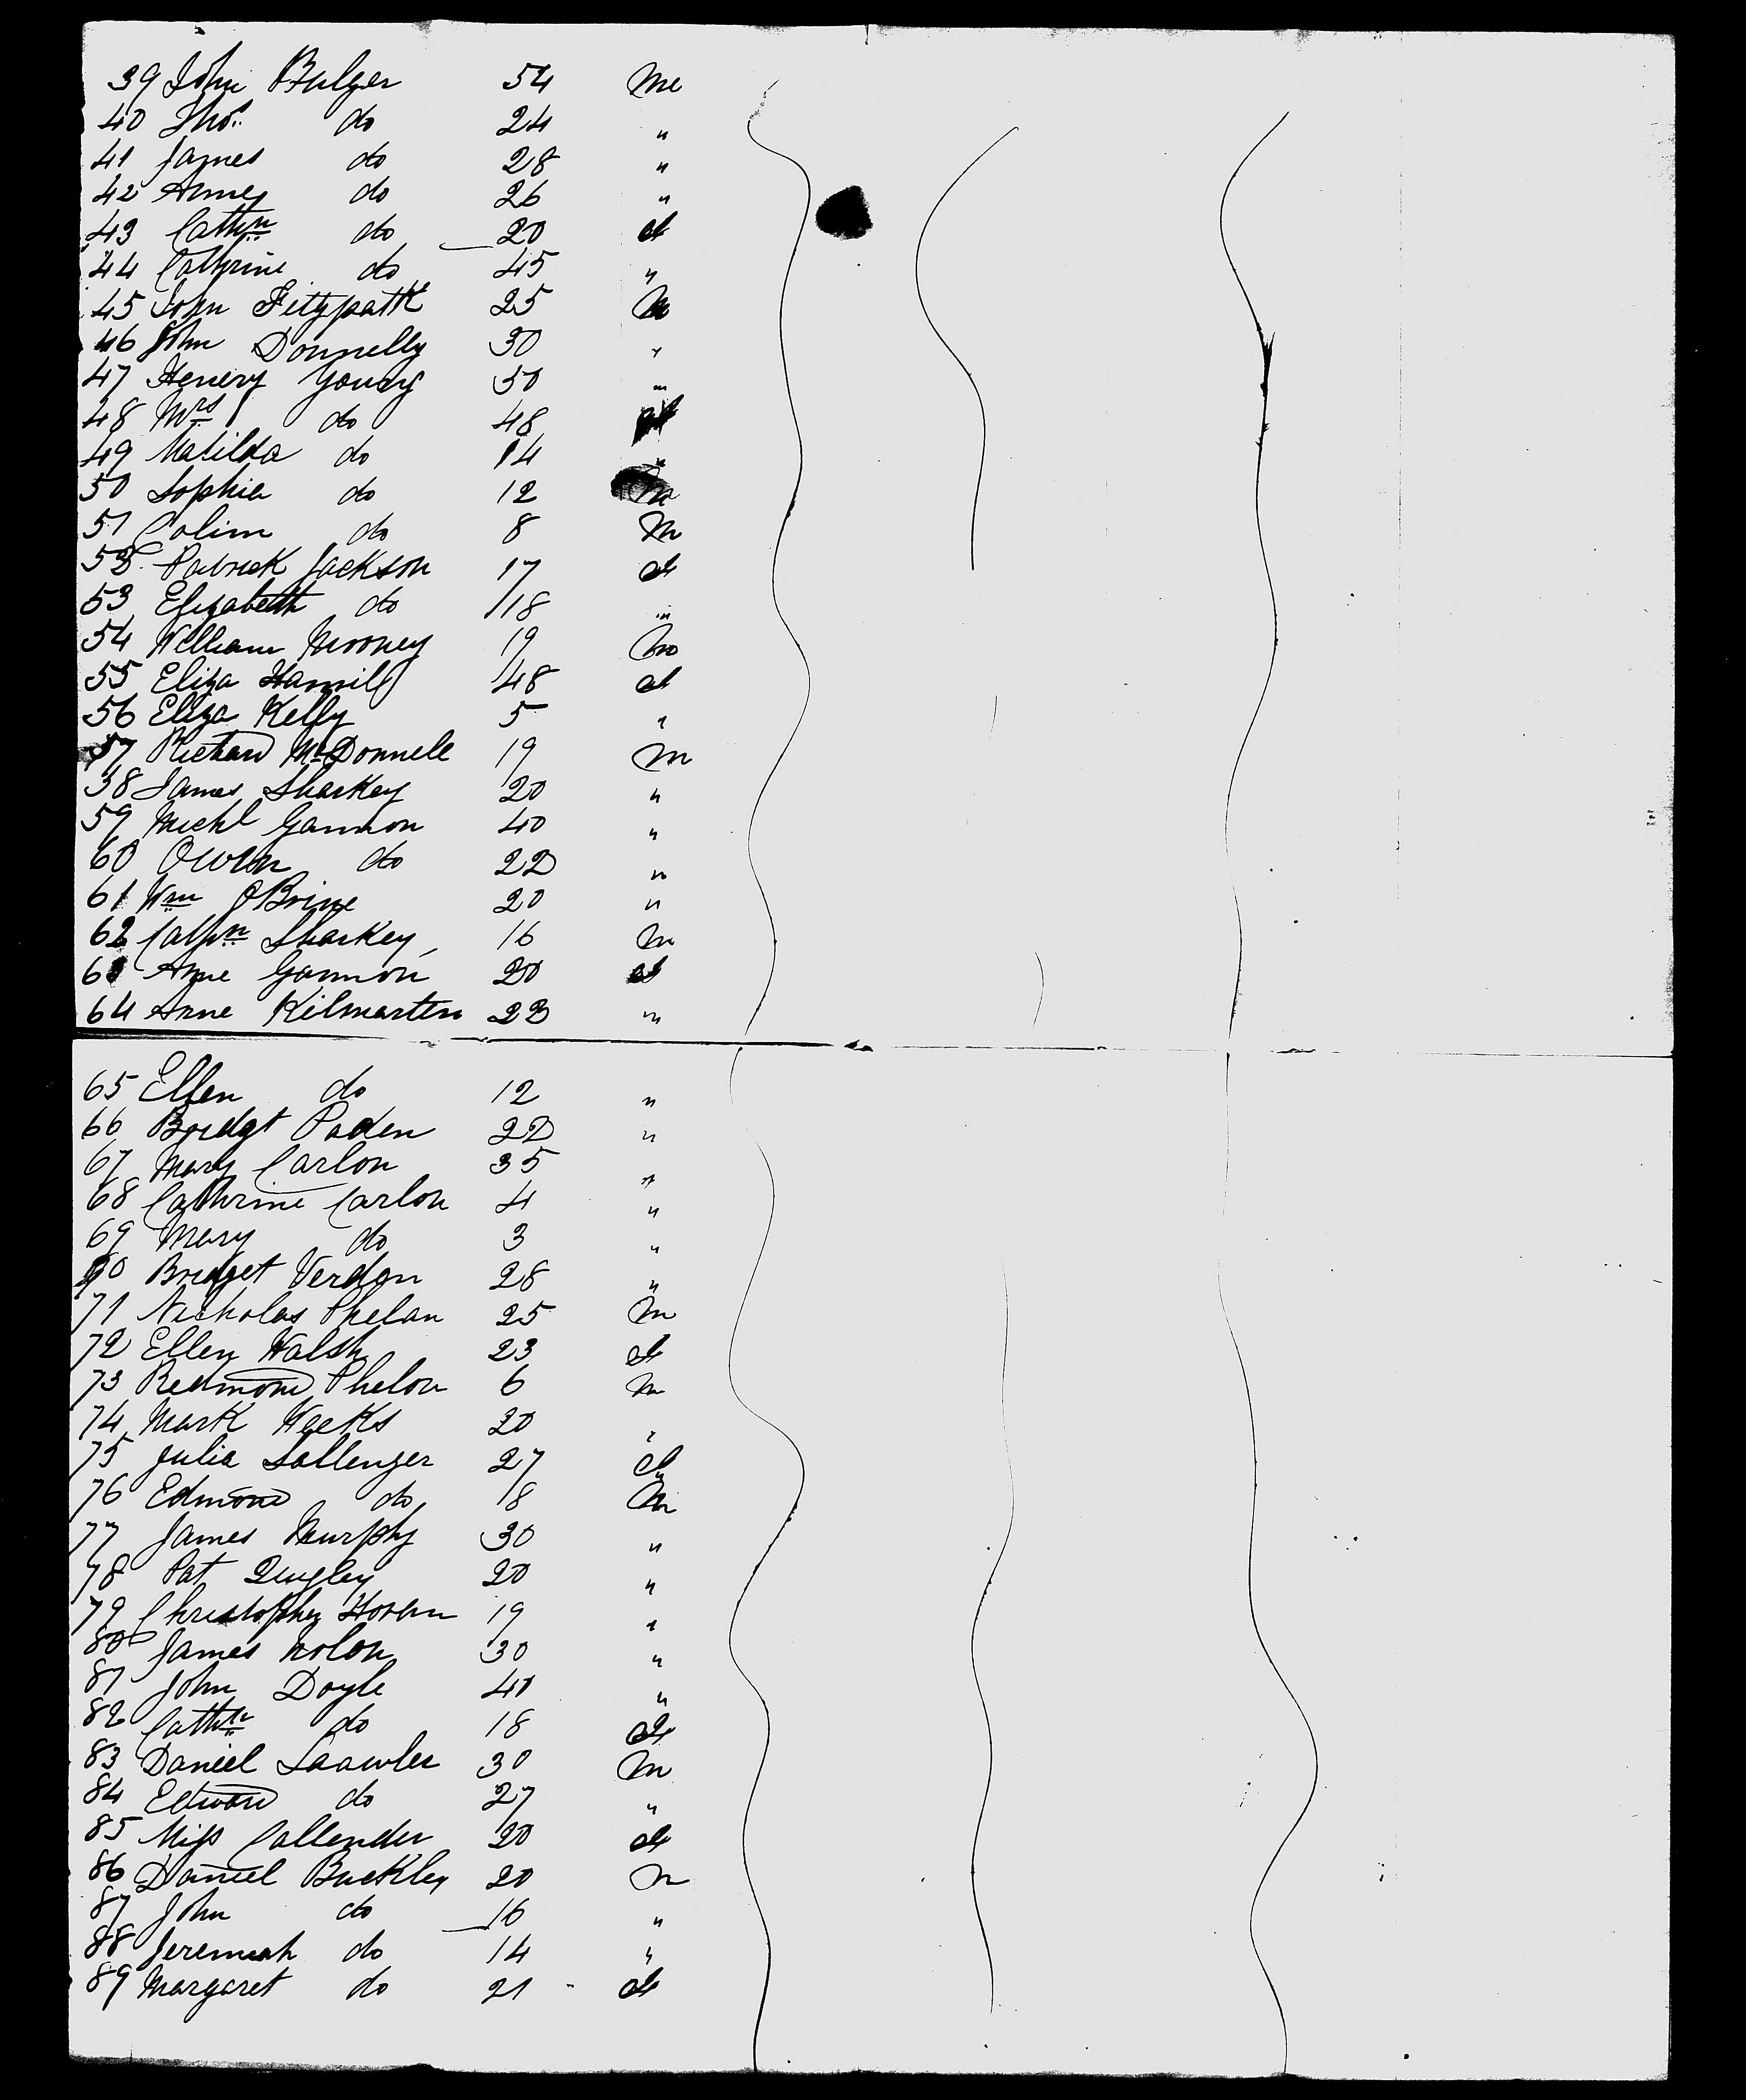 39 John Bulger 54 m
40 Thos. do 24 "
41 James do 28 "
42 Anney do 26 "
43 Cathn do 20 f
44 Cathrine do 45 "
45 John Fitzpatk 25 m
46 John Donnelly 30 "
47 Henery Young 50 "
48 Mrs do 48 f
49 Matilda do 14 "
50 Sophia do 12
51 Colim do 8 m
52 Patrick Jackson 17 f
53 Elizabeth do 18 "
54 William Mooney 19 m
55 Eliza Hamill 48 f
56 Eliza Kelly 5 "
57 Richard McDonnell 19 m
58 James Sharkey 20 "
59 Michl Gannon 40 "
60 Owen do 22 "
61 Wm OBrine 20 "
62 Cathn Sharkey 16 m
63 Anne Gannon 20 f
64 Anne Kilmarten 23 "
65 Ellen do 12 "
66 Bridgt Paden 22 "
67 Mary Carlon 35 "
68 Cathrine Carlon 4 "
69 Mary do 3 "
70 Bridget Verdon 28 "
71 Nicholas Phelan 25 m
72 Ellen Walsh 23 f
73 Redmond Phelon 6 m
74 Mark Weeks 20 "
75 Julia Sallenger 27 f
76 Edmond do 18 m
77 James Murphy 30 "
78 Pat Quigley 20 "
79 Christopher Horan 19 "
80 James Nolon 30 "
81 John Doyle 41 "
82 Cathn do 18 f
83 Daniel Laawler 30 m
84 Edward do 27 "
85 Miss Callender 20 f
86 Daniel Buckley 20 m
87 John do 16 "
88 Jeremiah do 14 "
89 Margaret do 21 f